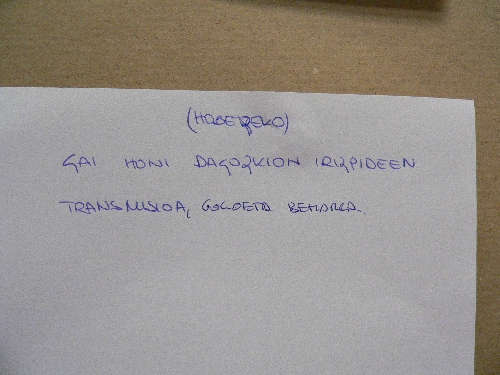 (HOBETZEKO)
GAI HONI DAGOZKION IRIZPIDEEN
TRANSMISIOA, GOGOETA BEHARRA.